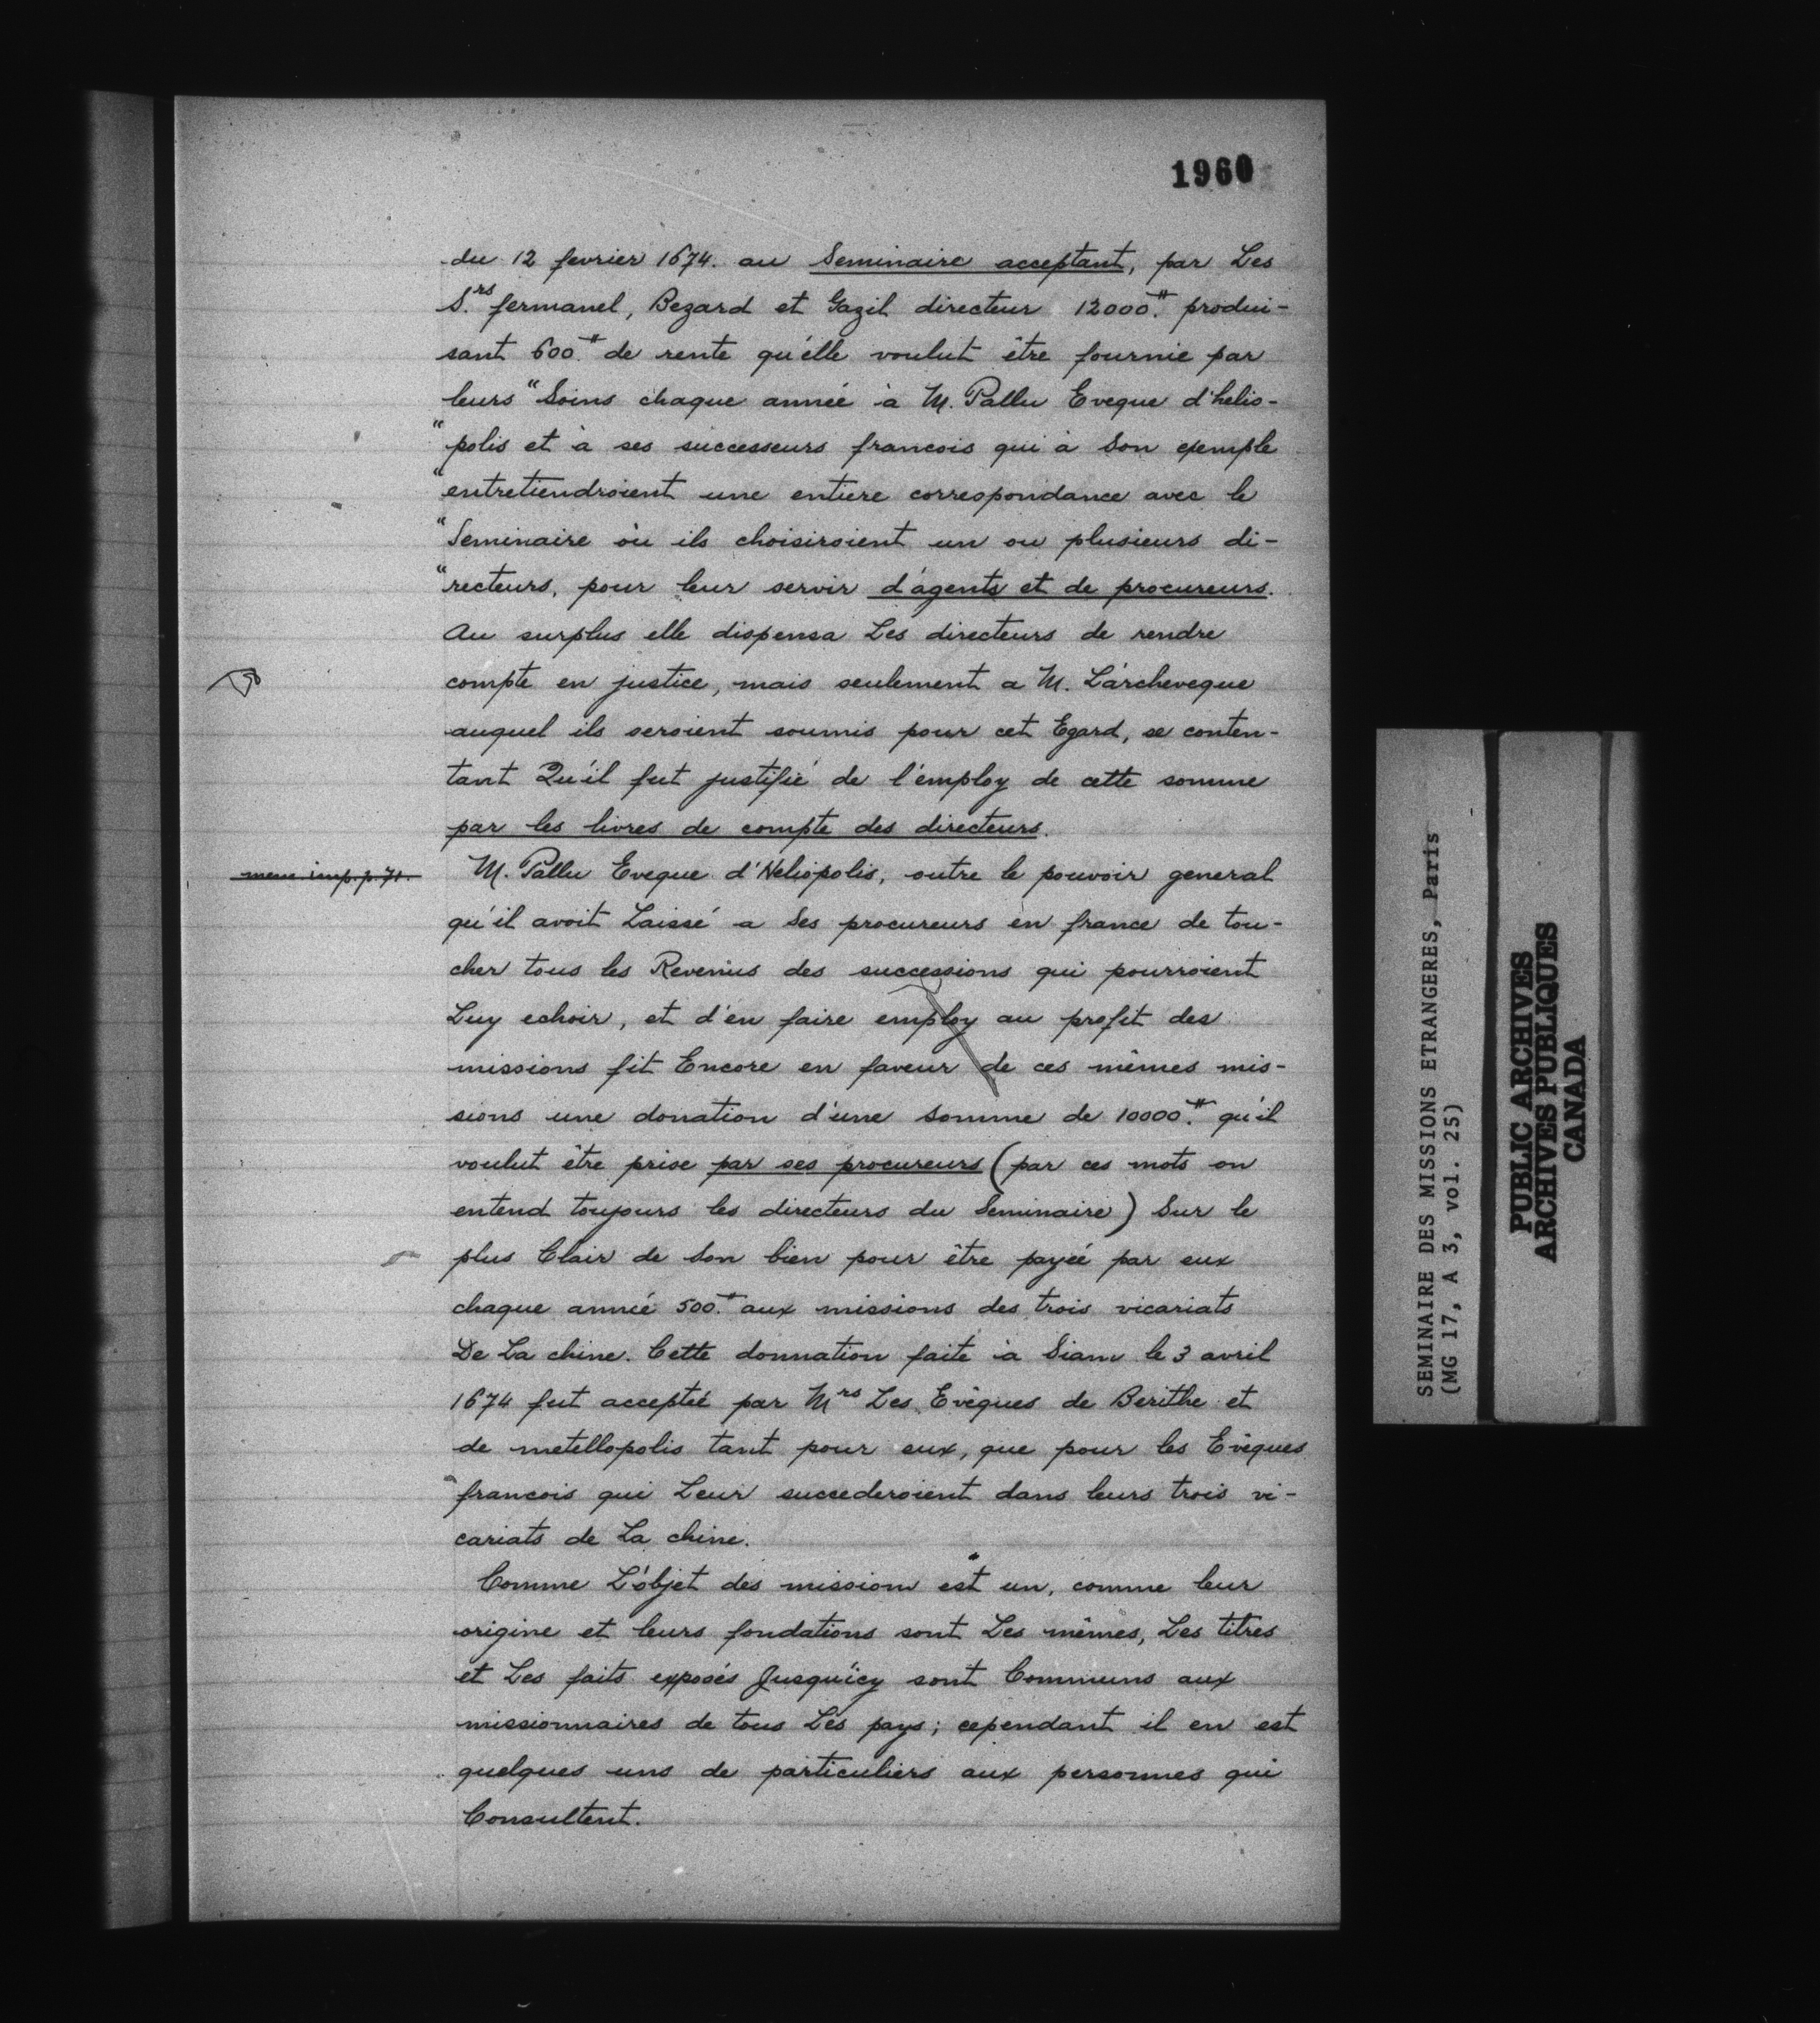 1960
du 12 fevrier 1674. au Seminaire acceptant, par Les
S.rs fermanel, Bezard et Gazil directeur 12000.# produi-
sant 600.# de rente qu'elle voulut être fournie par
leurs "Soins chaque année à M. Pallu Eveque d'helio-
"polis et à ses successeurs francois qui à Son exemple
"entretiendroient une entiere correspondance avec le
"Seminaire où ils choisiroient un ou plusieurs di-
"recteurs, pour leur servir d'agents et de procureurs.
Au surplus elle dispensa Les directeurs de rendre
compte en justice, mais seulement a M. L'archeveque
auquel ils seroient soumis pour cet Egard, se conten-
tant Qu'il fut justifié de l'employ de cette somme
par les livres de compte des directeurs.
meme imp. p. 71.
M. Pallu Eveque d'Heliopolis, outre le pouvoir general
qu'il avoit Laissé a Ses procureurs en france de tou-
cher tous les Revenus des successions qui pourroient
Luy echoir, et d'en faire employ au profit des
missions fit Encore en faveur de ces mêmes mis-
sions une donation d'une Somme de 10000.# qu'il
voulut être prise par ses procureurs (par ces mots on
entend toujours les directeurs du Seminaire) Sur le
plus Clair de Son bien pour être payée par eux
chaque année 500.# aux missions des trois vicariats
De La chine. Cette donnation faite à Siam le 3 avril
1674 fut acceptée par Mrs Les Evêques de Berithe et
de metellopolis tant pour eux, que pour les Evêques
francois qui Leur succederoient dans leurs trois vi-
cariats de La chine.
Comme L'objet des missions est un, comme leur
origine et leurs fondations sont Les mêmes, Les titres
et Les faits exposés Jusqu'icy sont Communs aux
missionnaires de tous Les pays; cependant il en est
quelques uns de particuliers aux personnes qui
Consultent.
SEMINAIRE DES MISSIONS ETRANGERES, Paris
(MG 17, A 3, vol. 25)
PUBLIC ARCHIVES
ARCHIVES PUBLIQUES
CANADA